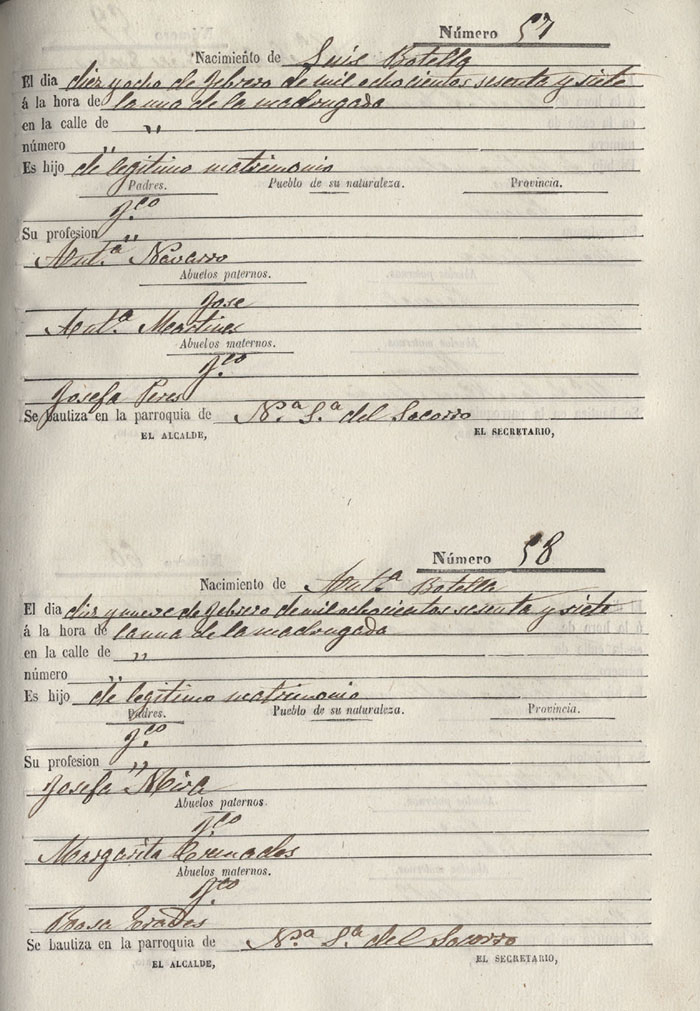 Número 57
Nacimiento de Luis Botella
El dia diez y ocho de febrero de mil ochocientos sesenta y siete
á la hora de la una de la madrugada
en la calle de "
número "
Es hijo de legitimo matrimonio
Padres. Pueblo de su naturaleza. Provincia.
Fco
Su profesion "
Anta Navarro
Abuelos paternos.
Jose
Anta Martines
Abuelos maternos.
Fco
Josefa Peres
Se bautiza en la parroquia de Na Sa del Socorro
EL ALCALDE, EL SECRETARIO,
Número 58
Nacimiento de Anta Botella
El dia diez y nueve de febrero de mil ochocientos sesenta y siete
á la hora de la una de la madrugada
en la calle de "
número "
Es hijo de legitimo matrimonio
Padres. Pueblo de su naturaleza. Provincia.
Fco
Su profesion "
Josefa Mira
Abuelos paternos.
Fco
Margarita Cremades
Abuelos maternos.
Fco
Rosa Erades
Se bautiza en la parroquia de Na Sa del Socorro
EL ALCALDE, EL SECRETARIO,